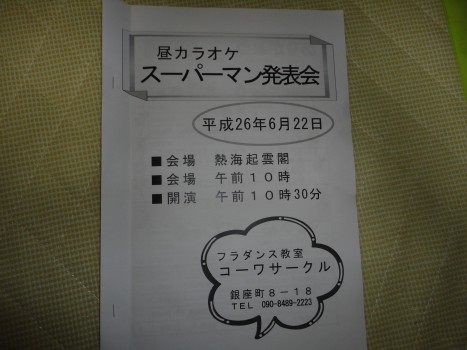 昼カラオケ
スーパーマン発表会
平成26年6月22日
■会場 熱海起雲閣
■会場 午前10時
■開演 午前10時30分
フラダンス教室
コーワサークル
銀座町8-18
TEL 090-8489-2223